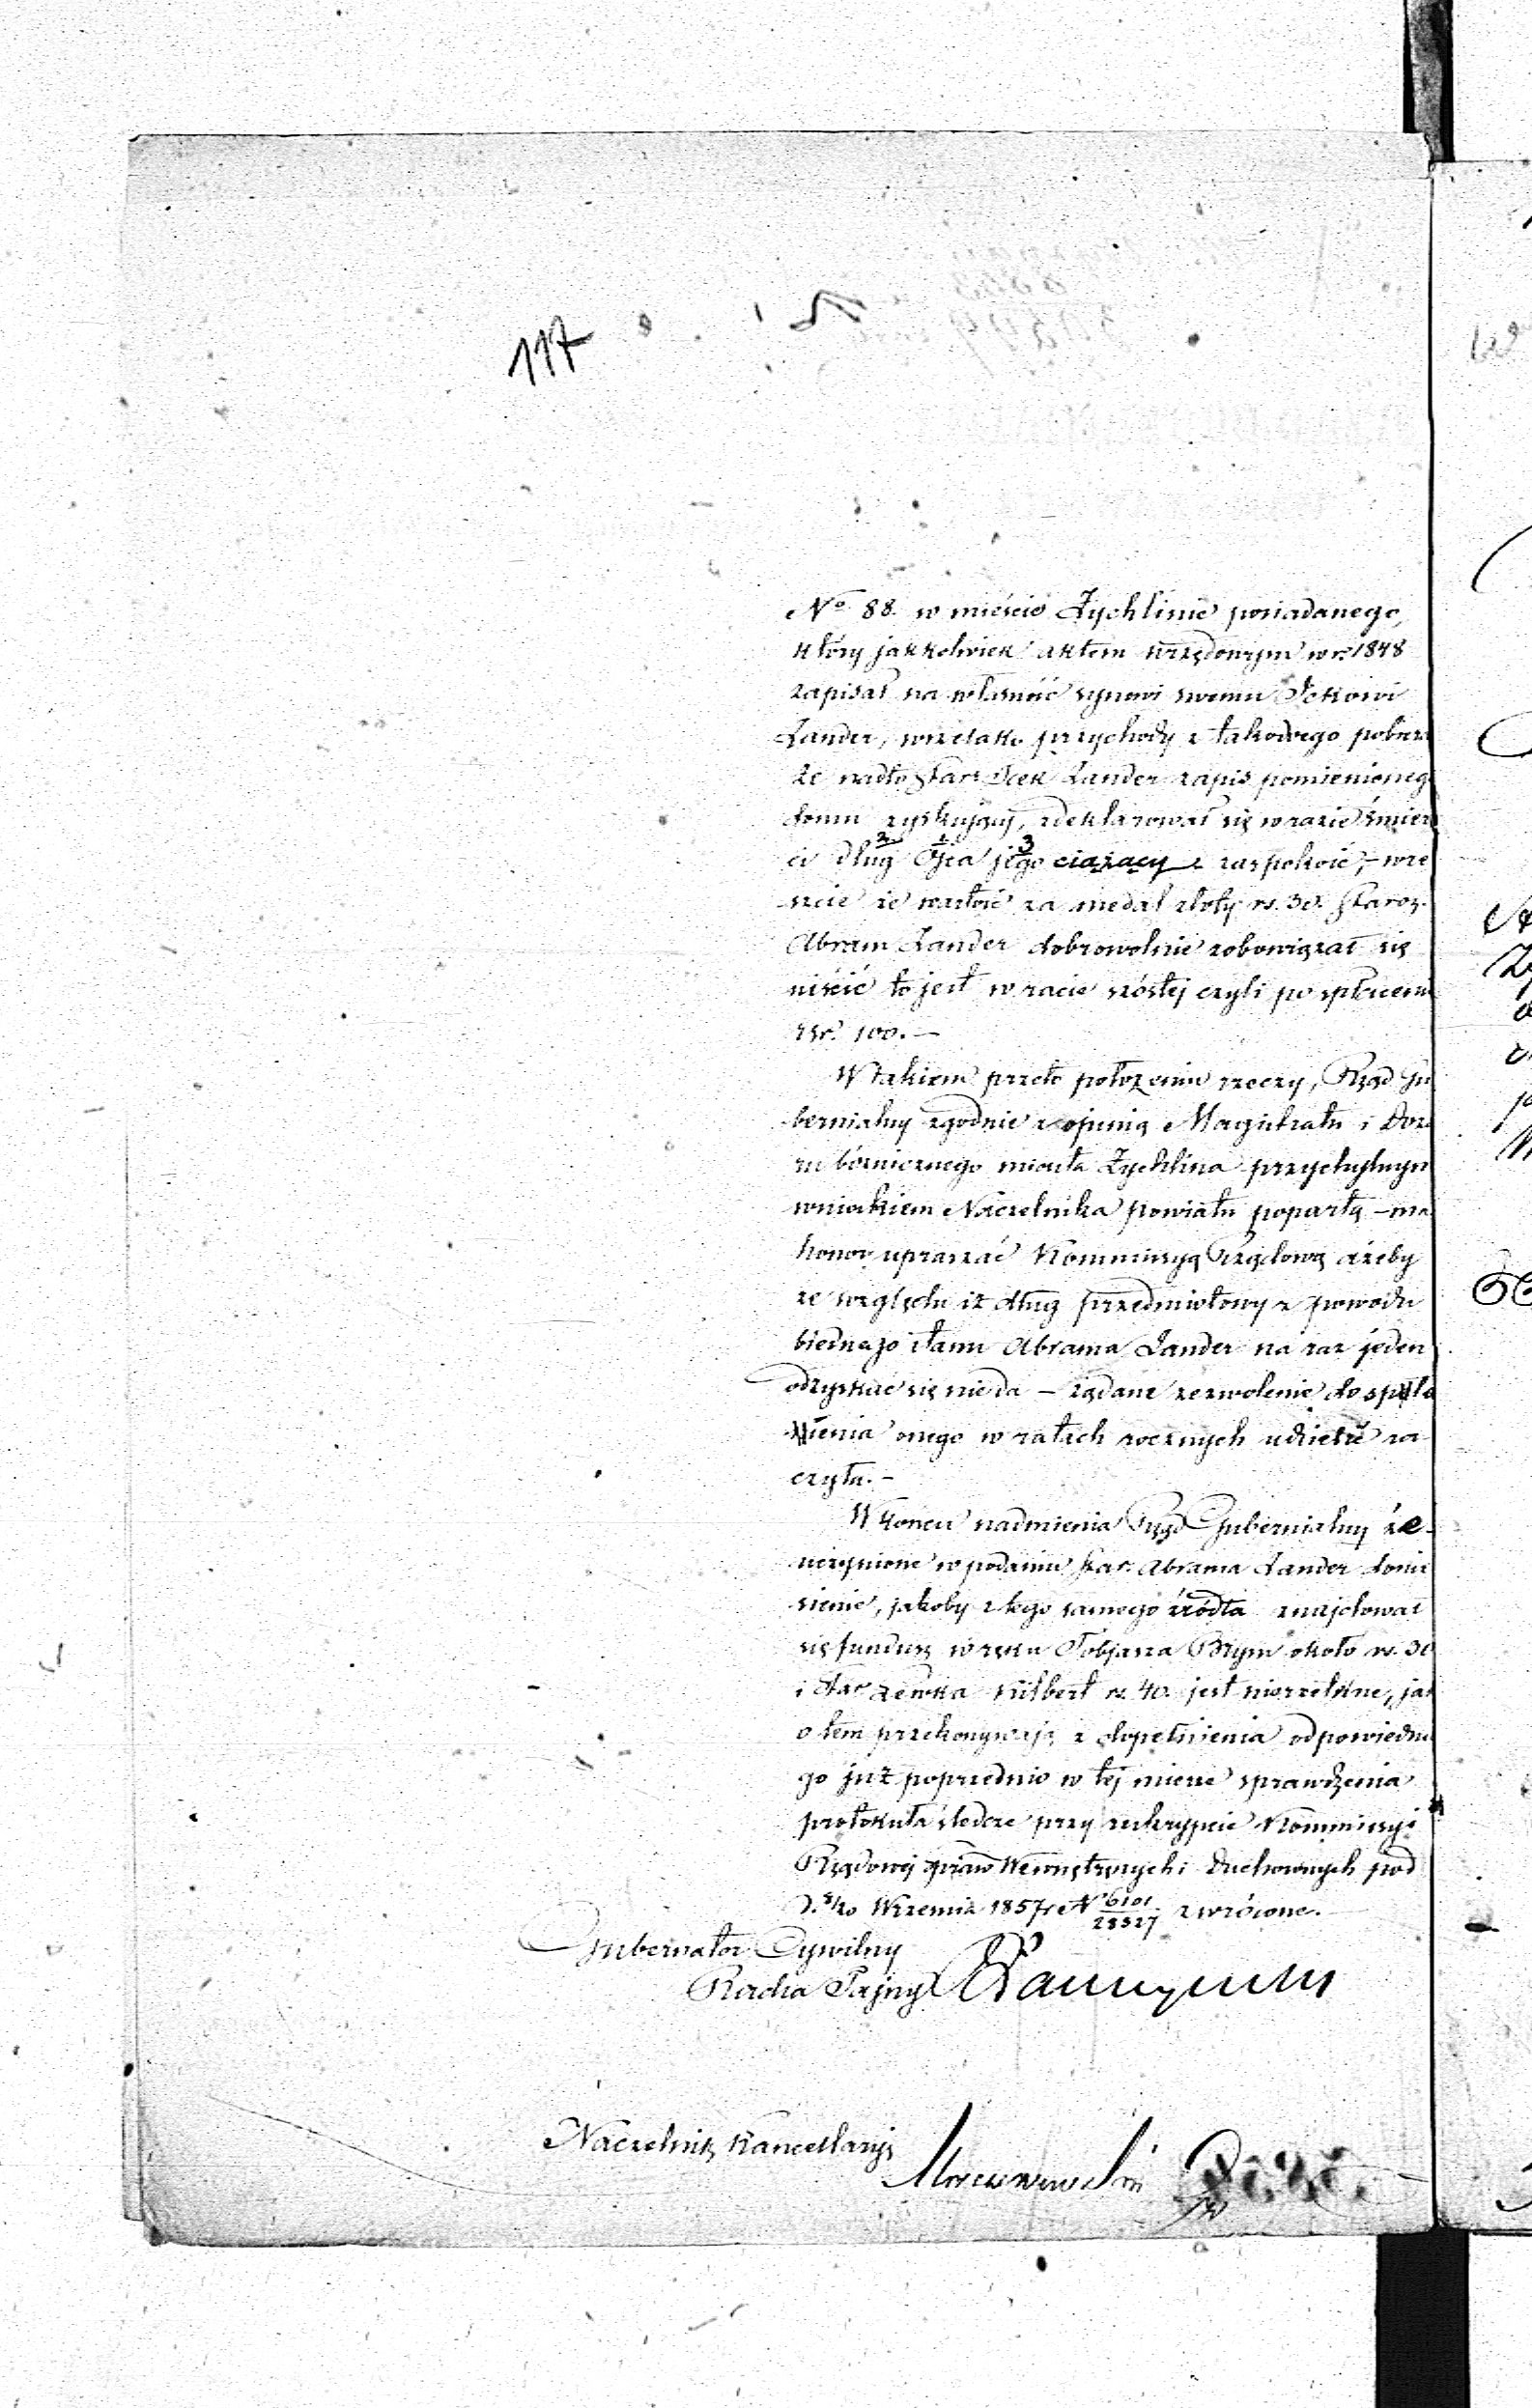 117
No 88. w mieście Żychlinie posiadanego,
który jakkolwiek aktem urzędowym w r. 1848
zapisał na własność synowi swemu Ickowi
Zander, wszelako przychody z takowego pobiera
że nadto Star. Icek Zander zapis pomienionego
domu zyskujący, zdeklarował się w razie śmier
ci dług Ojca jego ciążący zaspokoić, – wre
szcie że wartość za medal złoty rs. 30. Staroz.
Abram Zander dobrowolnie zobowiązał się
uiścić to jest w racie szóstej czyli po spłaceniu
rsr. 100. –
W takiem przeto położeniu rzeczy, Rząd Gu
bernialny zgodnie z opinią Magistratu i Dozo
ru bóżniczego miasta Żychlina przychylnym
wnioskiem Naczelnika powiatu popartą – ma
honor upraszać Kommissyą Rządową ażeby
ze względu iż dług przedmiotowy z powodu
biednego stanu Abrama Zander na raz jeden
odzyskać się nie da – żądane zezwolenie do spła
cenia onego w ratach rocznych udzielić ra
czyła. –
W końcu nadmienia Rząd Gubernialny że
uczynione w podaniu star. Abrama Zander donie
sienie, jakoby z tego samego źródła znajdował
się fundusz w ręku Tobjasza Brym około rs. 30
i star. Zewka Hilbert rs. 40. jest nierzetelne, jak
o tem przekonywają z dopełnienia odpowiednie
go już poprzednio w tej mierze sprawdzenia
protokuła śledcze przy reskrypcie Kommissyi
Rządowej Spraw Wewnętrznych i Duchownych pod
d. 8/20 Września 1857 r. No 6101/28527 zwrócone.
Gubernator Cywilny
Radca Tajny
Naczelnik Kancellaryi